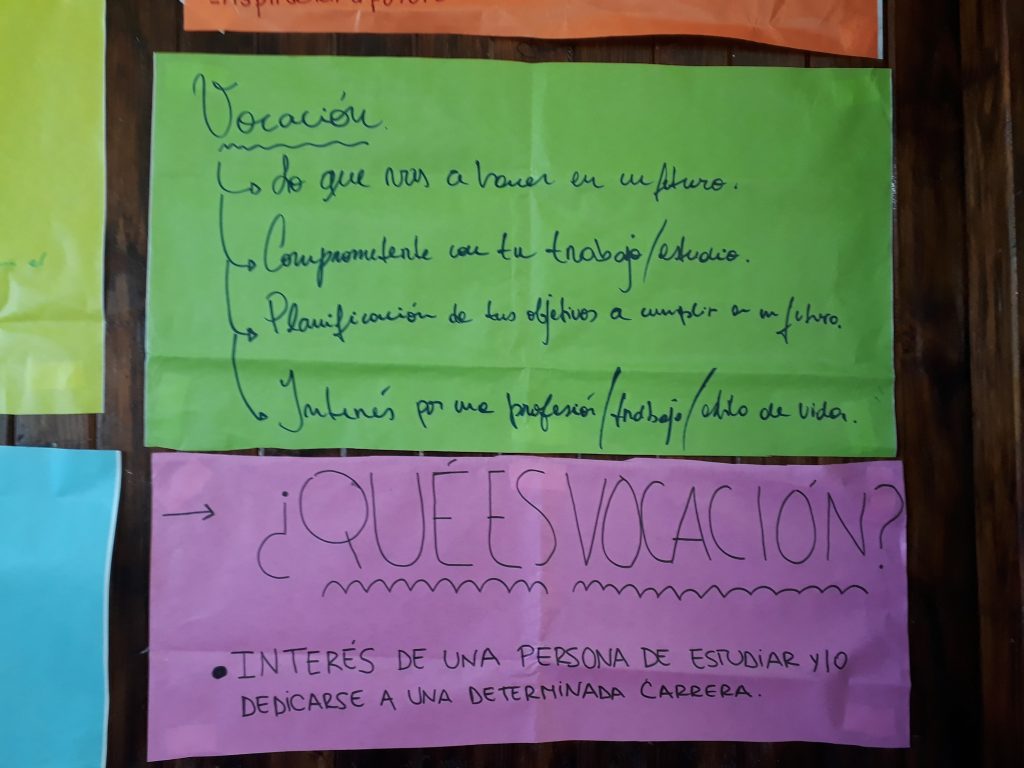 Inspiración a futuro
Vocación.
Lo que vas a hacer en un futuro.
Comprometerte con tu trabajo/estudio.
Planificación de tus objetivos a cumplir en un futuro.
Interés por una profesión/trabajo/estilo de vida.
→ ¿QUÉ ES VOCACIÓN?
• INTERÉS DE UNA PERSONA DE ESTUDIAR Y/O
DEDICARSE A UNA DETERMINADA CARRERA.